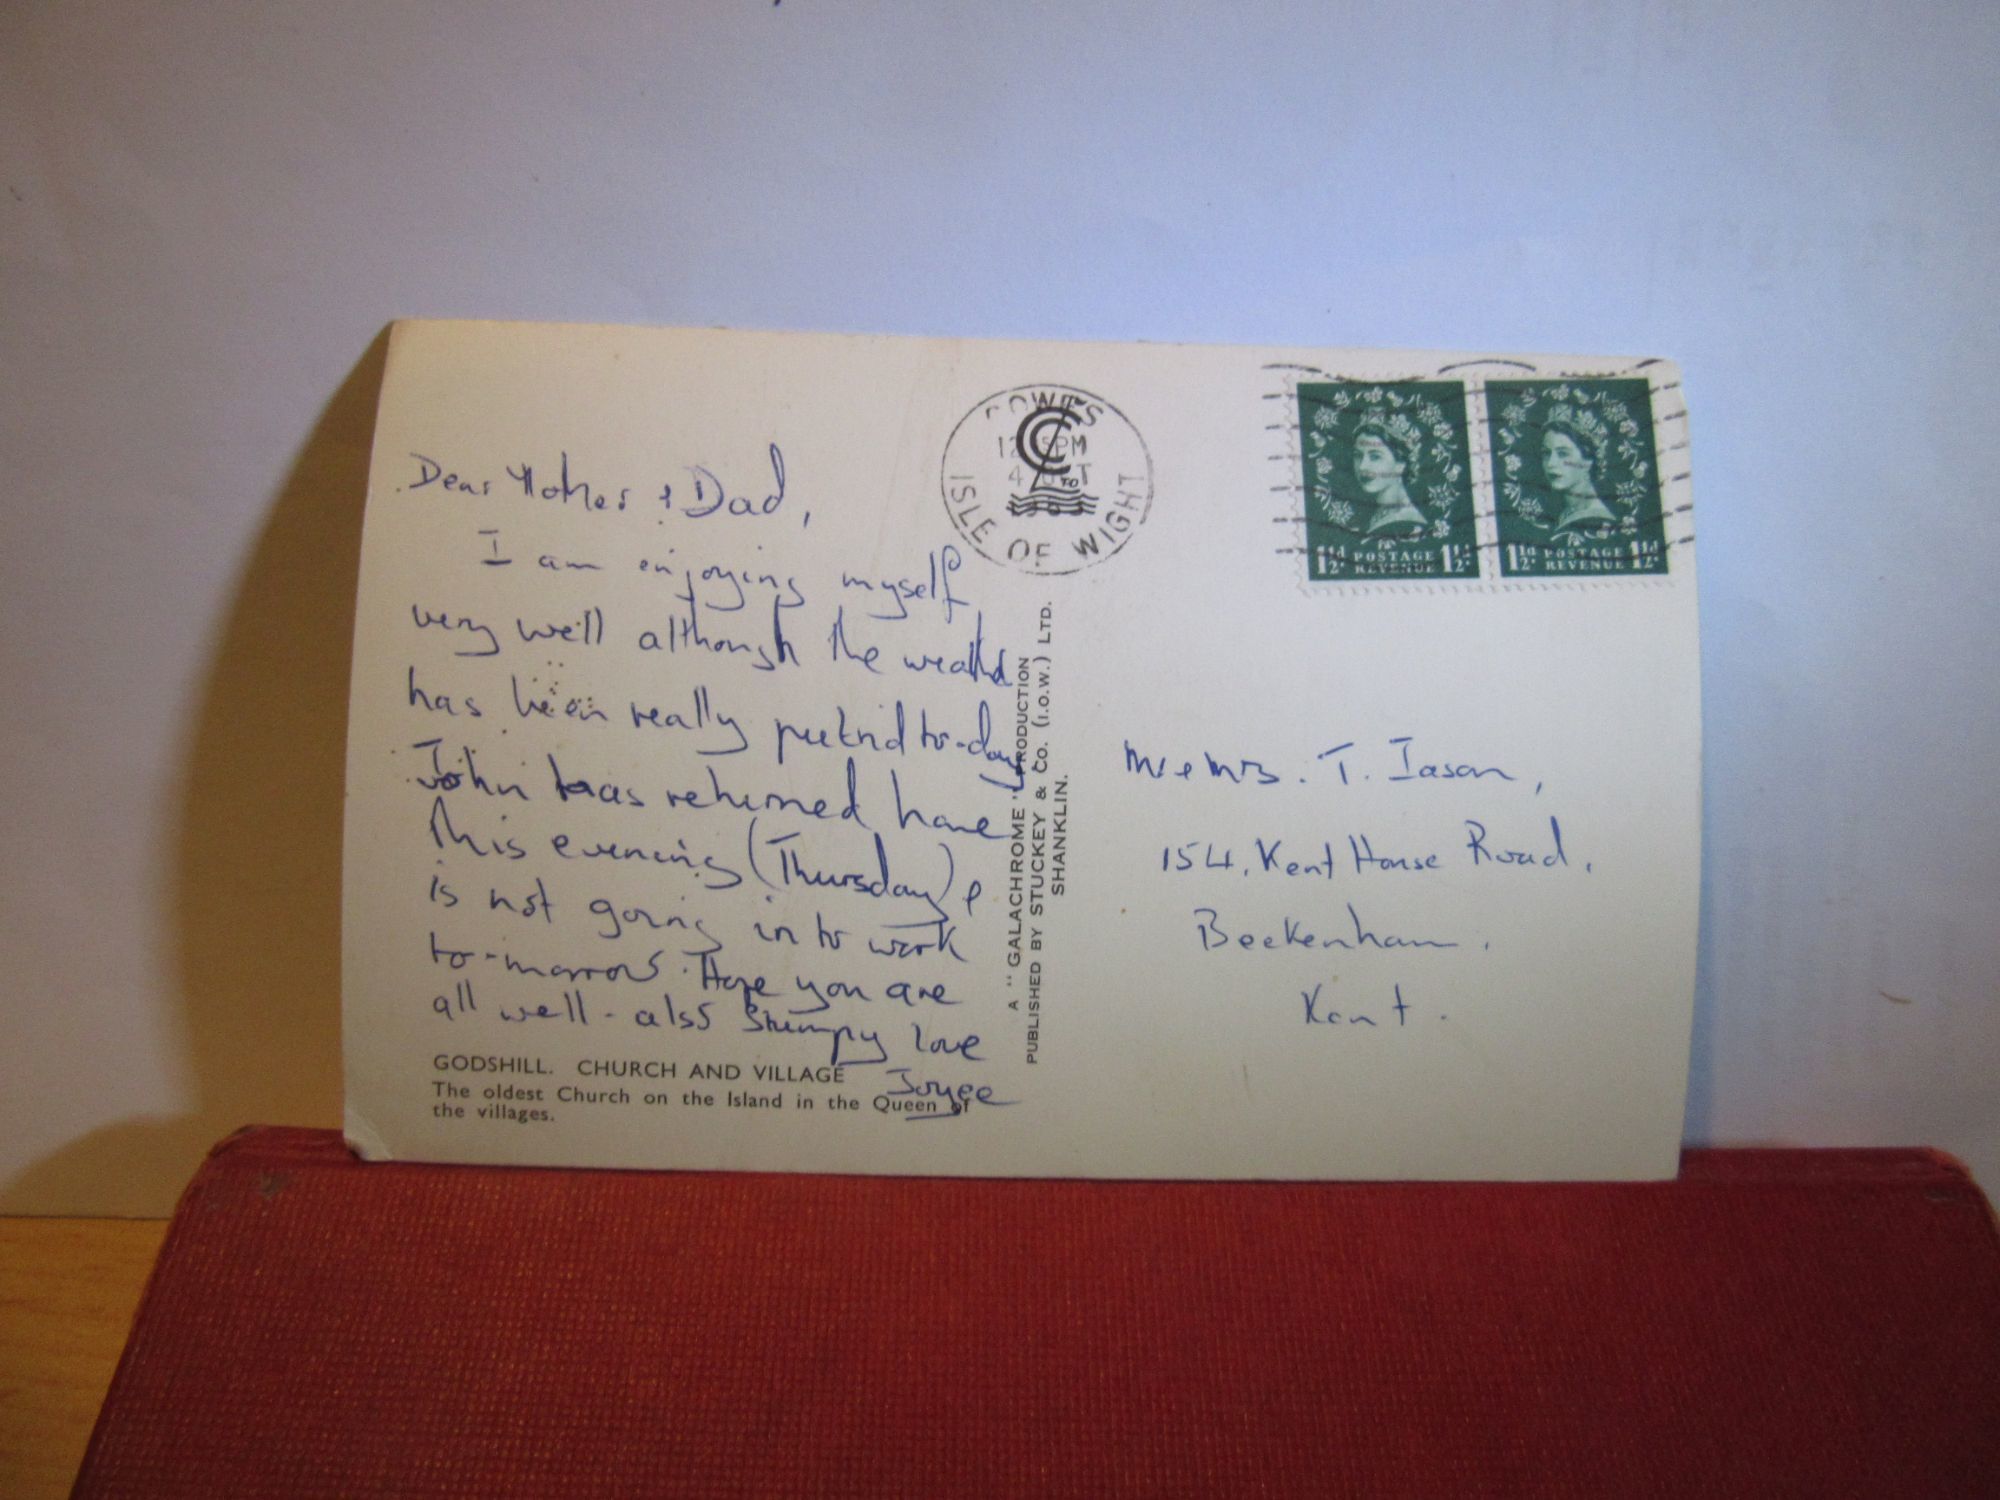 Dear Mother & Dad,
I am enjoying myself
very well although the weather
has been really putrid to-day.
John has returned home
this evening (Thursday) &
is not going in to work
to-morrow. Hope you are
all well - also Stumpy love
Joyce
GODSHILL. CHURCH AND VILLAGE
The oldest Church on the Island in the Queen of
the villages.
A "GALACHROME" PRODUCTION
PUBLISHED BY STUCKEY & CO. (I.O.W.) LTD.
SHANKLIN.
COWES
ISLE OF WIGHT
1½d POSTAGE 1½d
REVENUE
1½d POSTAGE 1½d
REVENUE
Mr & Mrs. T. Iason,
154, Kent House Road,
Beckenham.
Kent.